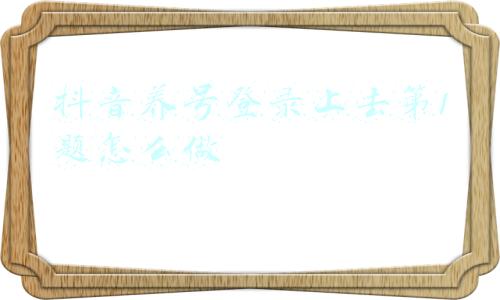 抖音养号登录上去第1
题怎么做